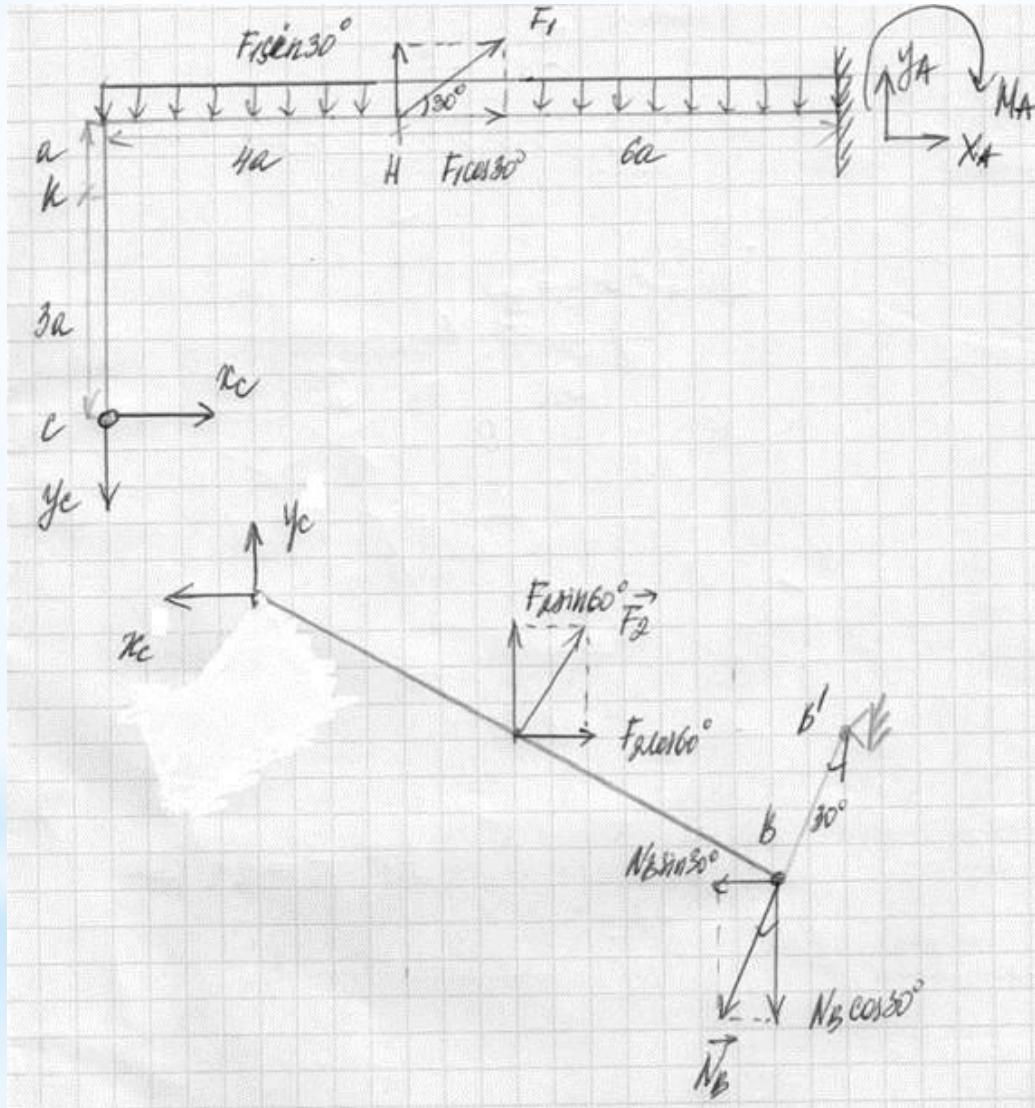 F₁sin30°
F₁
30°
Y_A
M_A
X_A
a
4a
H
F₁cos30°
6a
K
3a
x_c
C
y_c
y_c
x_c
F₂sin60°
F₂
F₂cos60°
B'
30°
B
N_Bsin30°
N_Bcos30°
N_B